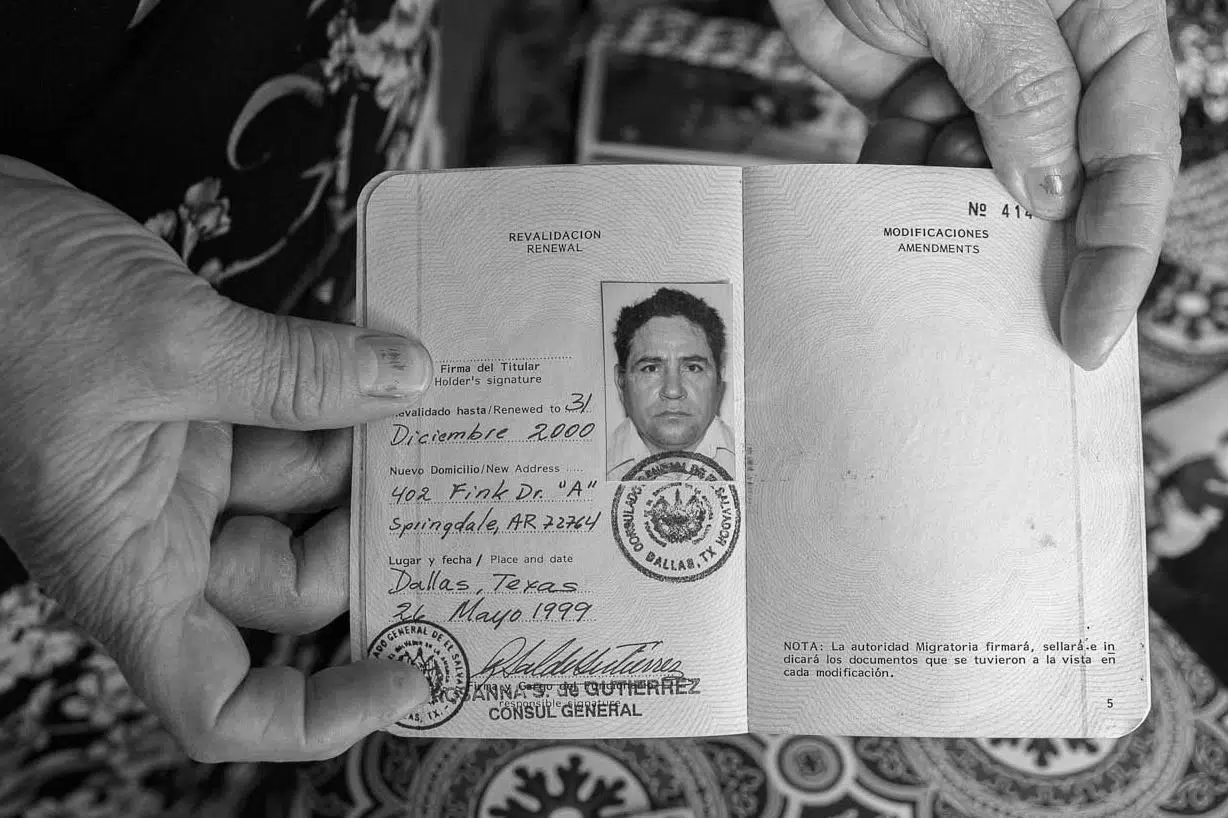 REVALIDACION
RENEWAL
Firma del Titular
Holder's signature
Revalidado hasta/Renewed to 31
Diciembre 2000
Nuevo Domicilio/New Address
402 Fink Dr. "A"
Springdale, AR 72764
Lugar y fecha / Place and date
Dallas, Texas
26 Mayo 1999
GENERAL DE EL SALVADOR
TX.
S. de GUTIERREZ
responsible signature
CONSUL GENERAL
CONSULADO GENERAL DE EL SALVADOR
DALLAS, TX
Nº 414
MODIFICACIONES
AMENDMENTS
NOTA: La autoridad Migratoria firmará, sellará e in
dicará los documentos que se tuvieron a la vista en
cada modificación.
5